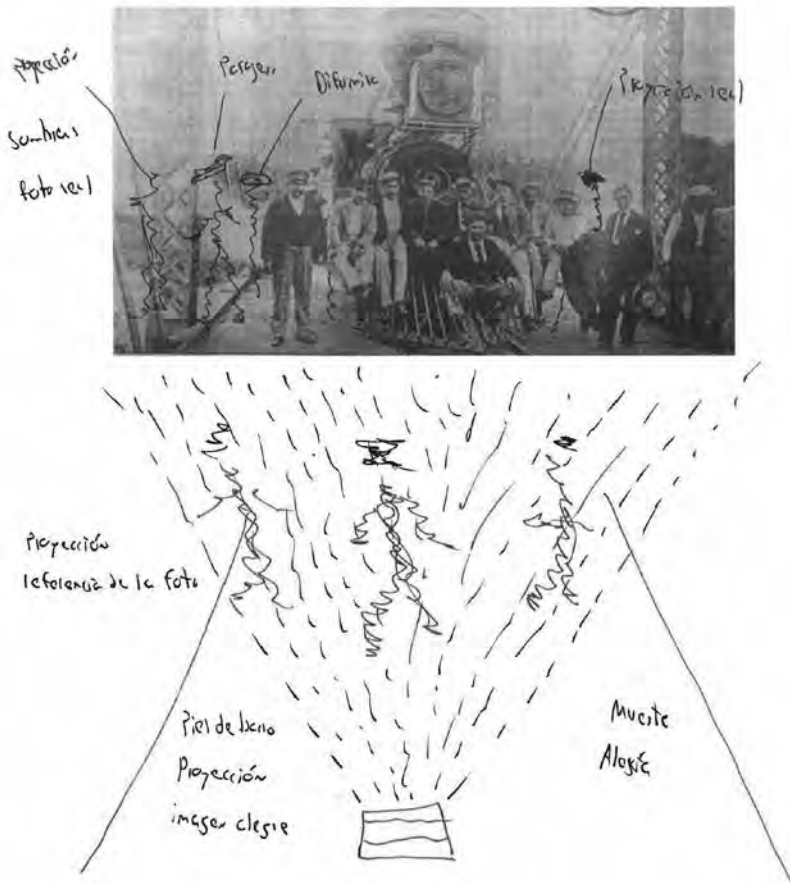 proyección
sombras
foto real
Difumina
Proyección real
Proyección
referencia de la foto
Proyección
imagen alegre
Muerte
Alegría